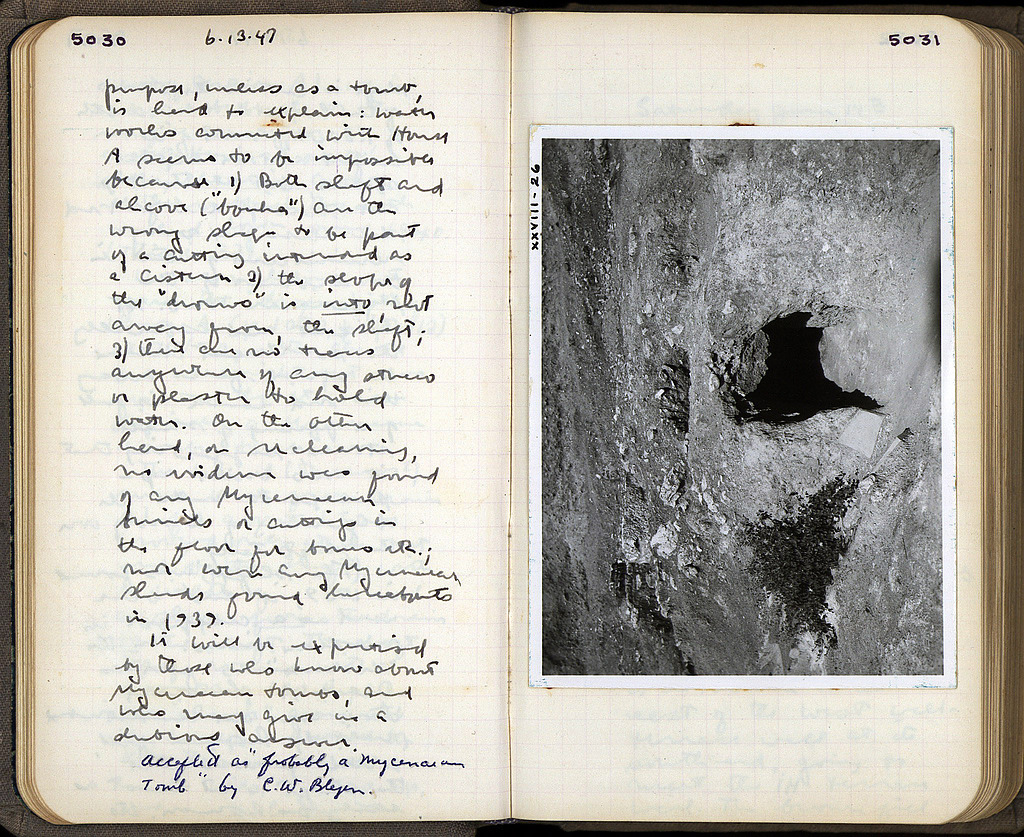 5030 6·13·47
purpose, unless as a tomb,
is hard to explain: water
works connected with House
A seems to be impossible
because 1) Both shaft and
alcove ("bouka") are the
wrong shape to be part
of a cutting intended as
a cistern 2) the slope of
the "dromos" is into not
away from, the shaft;
3) there are no traces
anywhere of any stucco
or plaster to hold
water. On the other
hand, on recleaning,
no evidence was found
of any Mycenaean
burials or cuttings in
the floor for bones etc.;
nor were any Mycenaean
sherds found thereabouts
in 1939.
It will be
by those who know about
Mycenaean tombs, and
who may give us a
dubious answer.
accepted as "probably a Mycenaean
Tomb" by C.W. Blegen.
5031
XXVIII - 26